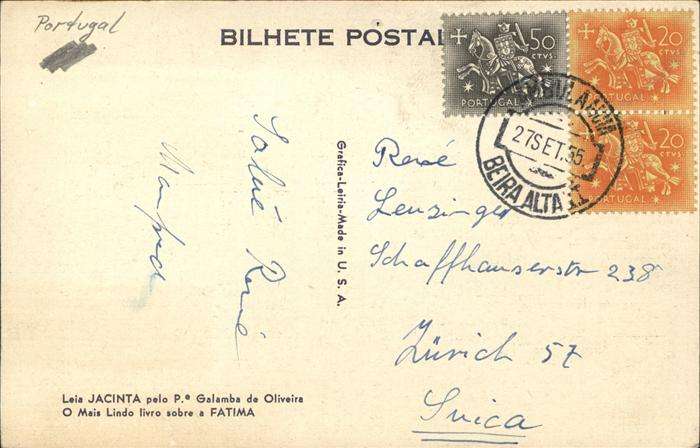 Portugal
BILHETE POSTAL
50
CTVS
PORTUGAL
20
CTVS
PORTUGAL
20
CTVS
PORTUGAL
AMBULANCIA
27 SET. 55
BEIRA ALTA II
Salü René
Manfred
Grafica-Leiria-Made in U. S. A.
René
Lenzinger
Schaffhauserstr 238
Zürich 57
Suica
Leia JACINTA pelo P.e Galamba de Oliveira
O Mais Lindo livro sobre a FATIMA